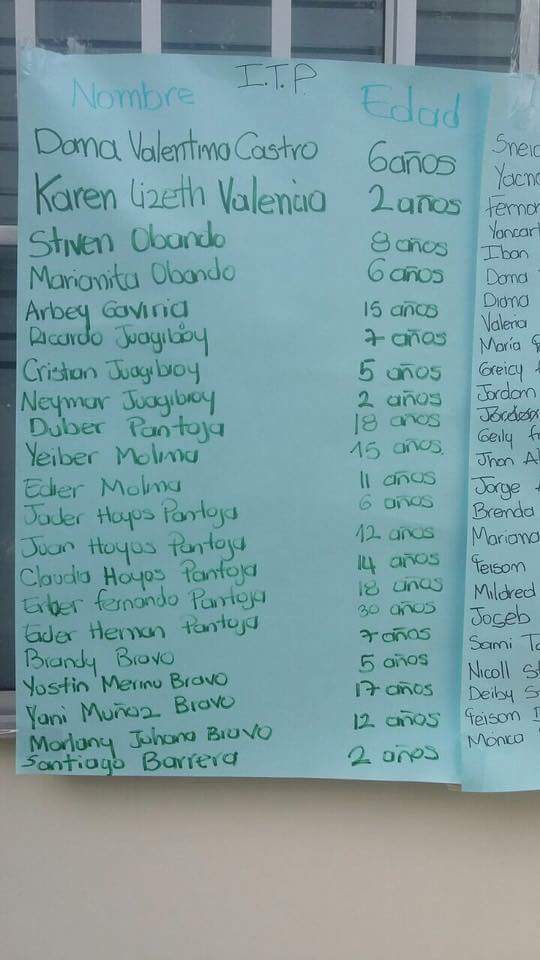 I.T.P.
Nombre Edad
Dama Valentina Castro 6 años
Karen Lizeth Valencia 2 años
Stiven Obando 8 años
Marianita Obando 6 años
Arbey Gaviria 15 años
Ricardo Juagibioy 7 años
Cristian Juagibioy 5 años
Neymar Juagibioy 2 años
Duber Pantoja 18 años
Yeiber Molina 15 años.
Edier Molina 11 años
Jader Hoyos Pantoja 6 años
Juan Hoyos Pantoja 12 años
Claudia Hoyos Pantoja 14 años
Erber fernando Pantoja 18 años
Eder Hernan Pantoja 30 años
Brandy Bravo 7 años
Yustin Merinu Bravo 5 años
Yani Muñoz Bravo 17 años
Marlany Juhana Bravo 12 años
Santiago Barrera 2 años
Sneid
Yacna
fernan
Yancart
Iban
Dama
Diana
Valeria
María
Greicy
Jordan
Geily
Jhon Al
Jorge
Brenda
Mariana
feison
Mildred
Joseb
Sami
Nicoll
Deiby
feison
Monica